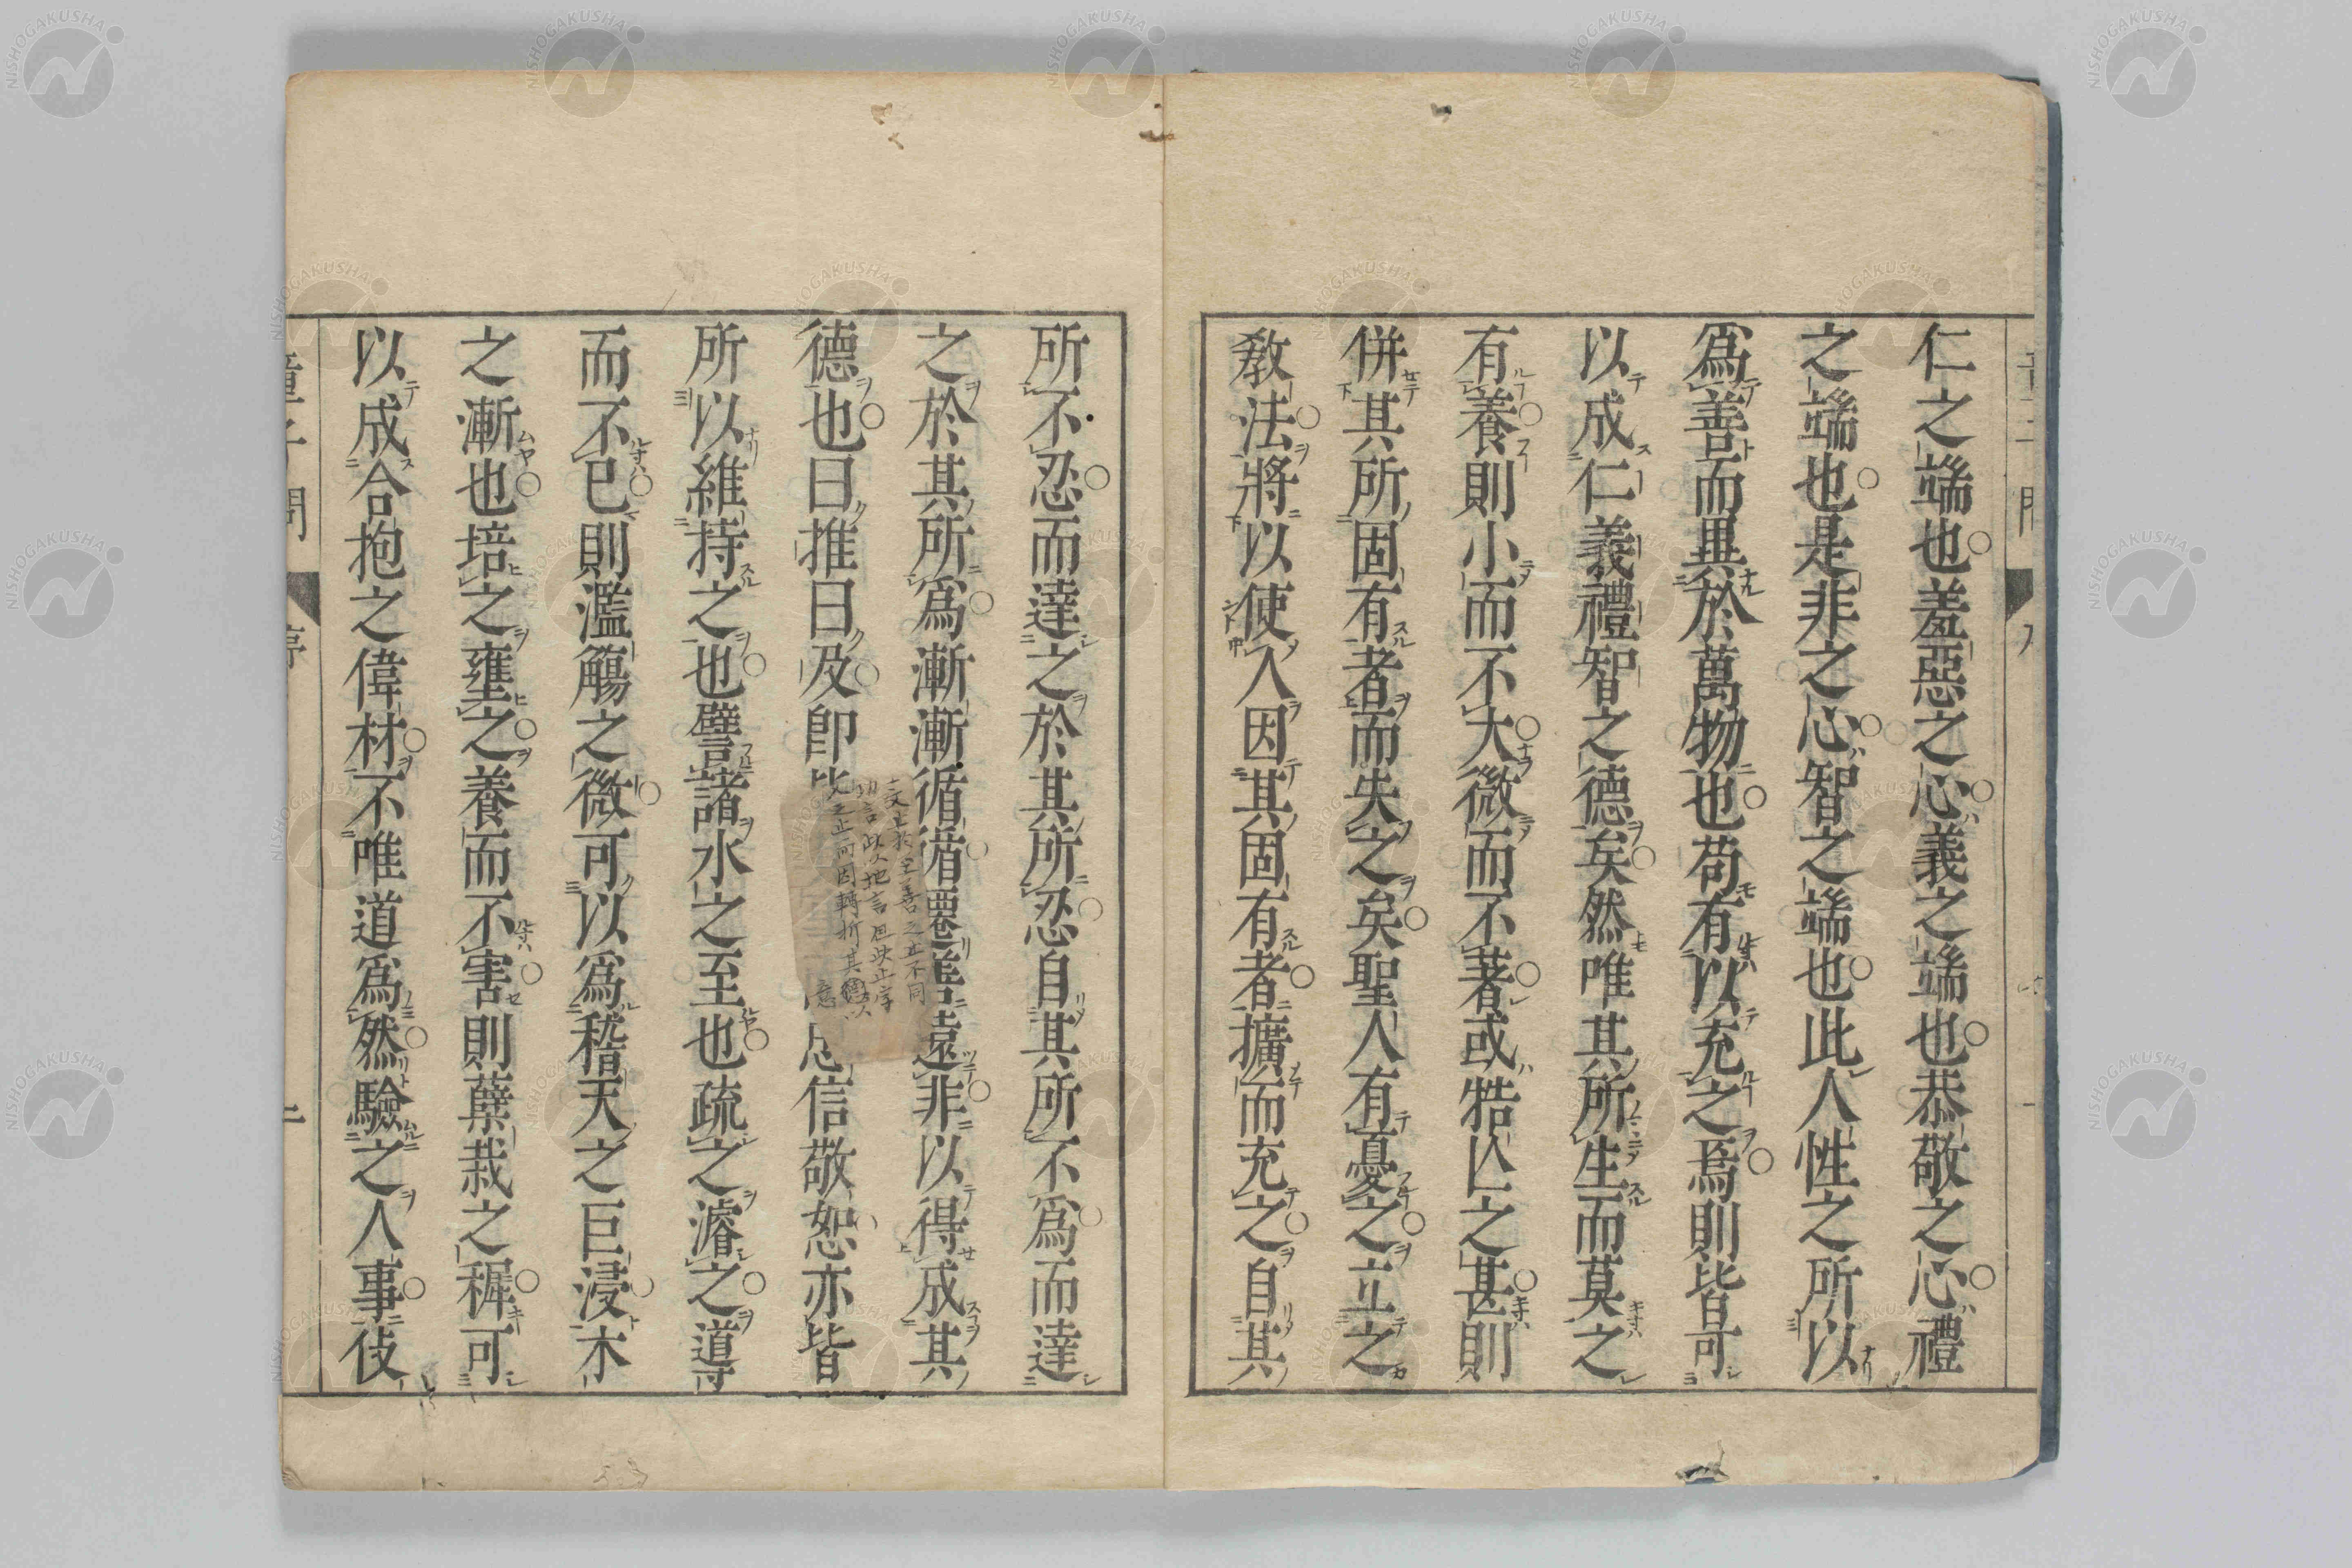 仁之端也羞惡之心義之端也恭敬之心禮
之端也是非之心智之端也此人性之所以
爲善而異於萬物也苟有以充之焉則皆可
以成仁義禮智之德矣然唯其所生而莫之
有養則小而不大微而不著或牿亾之甚則
併其所固有者而失之矣聖人有憂之立之
教法將以使人因其固有者擴而充之自其
所不忍而達之於其所忍自其所不爲而達
之於其所爲漸漸循循遷善遠非以得成其
德也曰推曰及卽 忠信敬恕亦皆
所以維持之也譬諸水之至也疏之濬之導
而不已則濫觴之微可以爲稽天之巨浸木
之漸也培之壅之養而不害則蘖栽之穉可
以成合抱之偉材不唯道爲然驗之人事伎
童子問
序
二
NISHOGAKUSHA